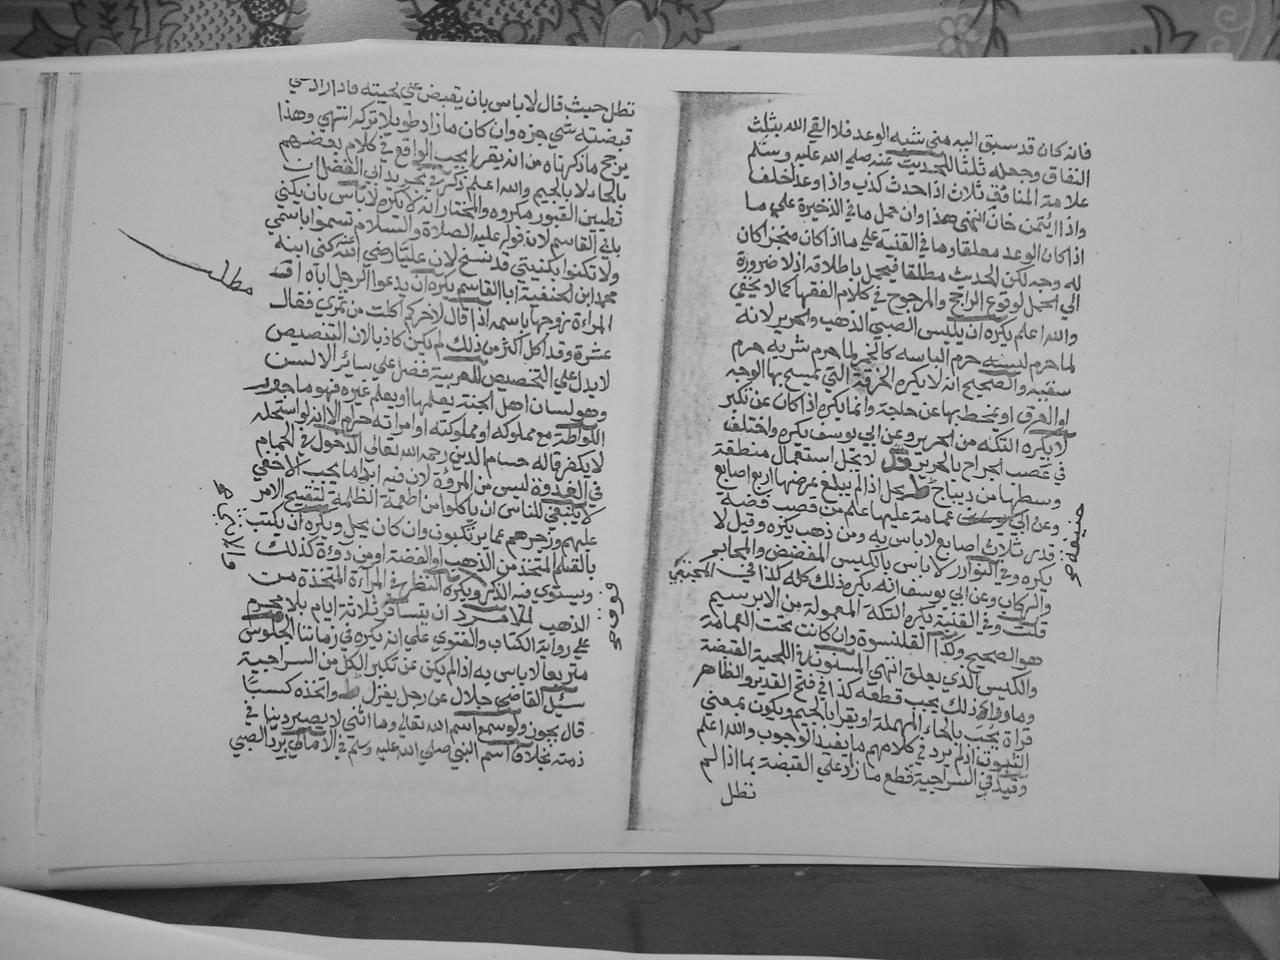 فانه كان قد سبق اليه مني شبه الوعد فلا القي الله بثلث
النفاق وجعله ثلثا للحديث عنه صلي الله عليه وسلم
علامة المنافق ثلاث اذا حدث كذب واذا وعد اخلف
واذا ايتمن خان انتهى هذا وان حمل ما في الذخيرة علي ما
اذا كان الوعد معلقا وما في القنية علي ما اذا كان منجزا كان
له وجه لكن الحديث مطلقا فيحمل باطلاقه اذ لا ضرورة
الي الحمل لوقوع الراجح والمرجوح في كلام الفقها كما لا يخفي
والله اعلم يكره ان يلبس الصبي الذهب والحرير لانه
لما حرم لبسه حرم الباسه كالخمر لما حرم شربه حرم
سقيه والصحيح انه لا يكره الخرقة التي يمسح بها الوجه
او العرق او يمخط بها عن حاجة وانما يكره اذا كان عن تكبر
لا يكره التكة من الحرير وعن ابي يوسف يكره واختلف
في عصب الجراح بالحرير لا يحل استعمال منطقة
وسطها من ديباج يحل اذا لم يبلغ عرضها اربع اصابع
وعن ابي عمامة عليها علم من قصب فضة
حنيفة صح
قدر ثلاث اصابع لا باس به ومن ذهب يكره وقيل لا
يكره وفي النوادر لا باس بالكيس المفضض والمحابر
والركاب وعن ابي يوسف انه يكره ذلك كله كذا في المجتبي
قلت وفي القنية يكره التكة المعمولة من الابرسيم
هو الصحيح وكذا القلنسوة وان كانت تحت العمامة
والكيس الذي يعلق انتهى المسنون في اللحية القبضة
وما وراء ذلك يجب قطعه كذا في فتح القدير والظاهر
قراة يجب بالحاء المهملة او يقرا بالجيم ويكون بمعني
الثبوت اذ لم يرد في كلامهم ما يفيد الوجوب والله اعلم
وقيد في السراجية قطع ما زاد علي القبضة بما اذا لم
تطل
تطل حيث قال لا باس بان يقبض علي لحيته فاذا زاد علي
قبضته شي جزه وان كان ما زاد طويلا تركه انتهي وهذا
يرجح ما ذكرناه من انه يقرا يجب الواقع في كلام بعضهم
بالحاء لا بالجيم والله اعلم ذكر في تجريد ابي الفضل ان
تطيين القبور مكروه والمختار انه لا يكره لا باس بان يكني
بابي القاسم لان قوله عليه الصلاة والسلام تسموا باسمي
ولا تكنوا بكنيتي قد نسخ لان عليا رضي الله عنه كنى ابنه
محمد ابن الحنفية ابا القاسم يكره ان يدعوا الرجل اباه او
مطلب
المراءة زوجها باسمه اذا قال لاخر كم اكلت من تمري فقال
عشرة وقد اكل اكثر من ذلك لم يكن كاذبا لان التنصيص
لا يدل علي التخصيص للعربية فضل علي سائر الالسن
وهو لسان اهل الجنة يعلمها او يعلم غيره فهو ماجور
اللواطة مع مملوكه او مملوكته او امراته حرام الا انه لو استحله
لا يكفر قاله حسام الدين رحمه الله تعالي الدخول في الحمام
في الغدوة ليس من المروءة لان فيه ابدا ما يجب الاخفي
لا ينبغي للناس ان ياكلوا من اطعمة الظلمة لتقبيح الامر
عليهم وزجرهم عما يرتكبون وان كان يحل ويكره ان يكتب
بالقلم المتخذ من الذهب او الفضة او من دواة كذلك
ويستوي فيه الذكر ويكره النظر في المراءة المتخذة من
والانثي صح
الذهب للامرد ان يسافر ثلاثة ايام بلا محرم
علي رواية الكتاب والفتوي علي انه يكره في زماننا الجلوس
متربعا لا باس به اذا لم يكن عن تكبر الكل من السراجية
سئل القاضي جلال عن رجل يغزل واتخذه كسبا
قال يجوز ولو سمع اسم الله تعالي وما اثني لا يصير دينا في
ذمته بخلاف اسم النبي صلي الله عليه وسلم في الامالي يرد الصبي